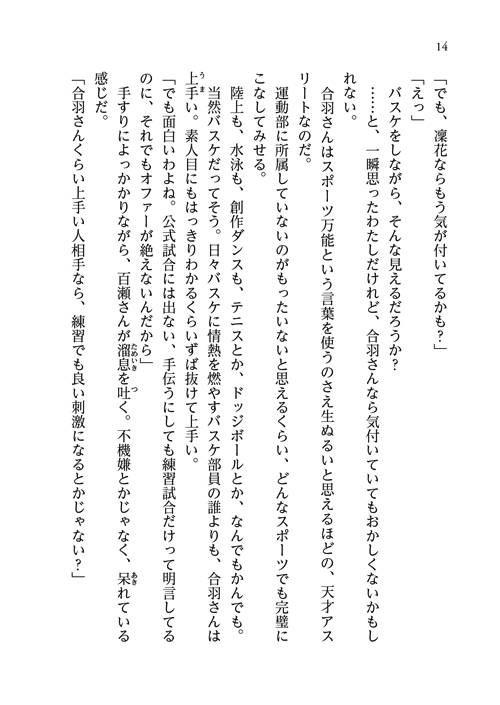 14
「でも、凜花ならもう気が付いてるかも？」
「えっ」
バスケをしながら、そんな見えるだろうか？
……と、一瞬思ったわたしだけれど、合羽さんなら気付いていてもおかしくないかもし
れない。
合羽さんはスポーツ万能という言葉を使うのさえ生ぬるいと思えるほどの、天才アス
リートなのだ。
運動部に所属していないのがもったいないと思えるくらい、どんなスポーツでも完璧に
こなしてみせる。
陸上も、水泳も、創作ダンスも、テニスとか、ドッジボールとか、なんでもかんでも。
当然バスケだってそう。日々バスケに情熱を燃やすバスケ部員の誰よりも、合羽さんは
上手い。素人目にもはっきりわかるくらいずば抜けて上手い。
「でも面白いわよね。公式試合には出ない、手伝うにしても練習試合だけって明言してる
のに、それでもオファーが絶えないんだから」
手すりによっかかりながら、百瀬さんが溜息を吐く。不機嫌とかじゃなく、呆れている
感じだ。
「合羽さんくらい上手い人相手なら、練習でも良い刺激になるとかじゃない？」